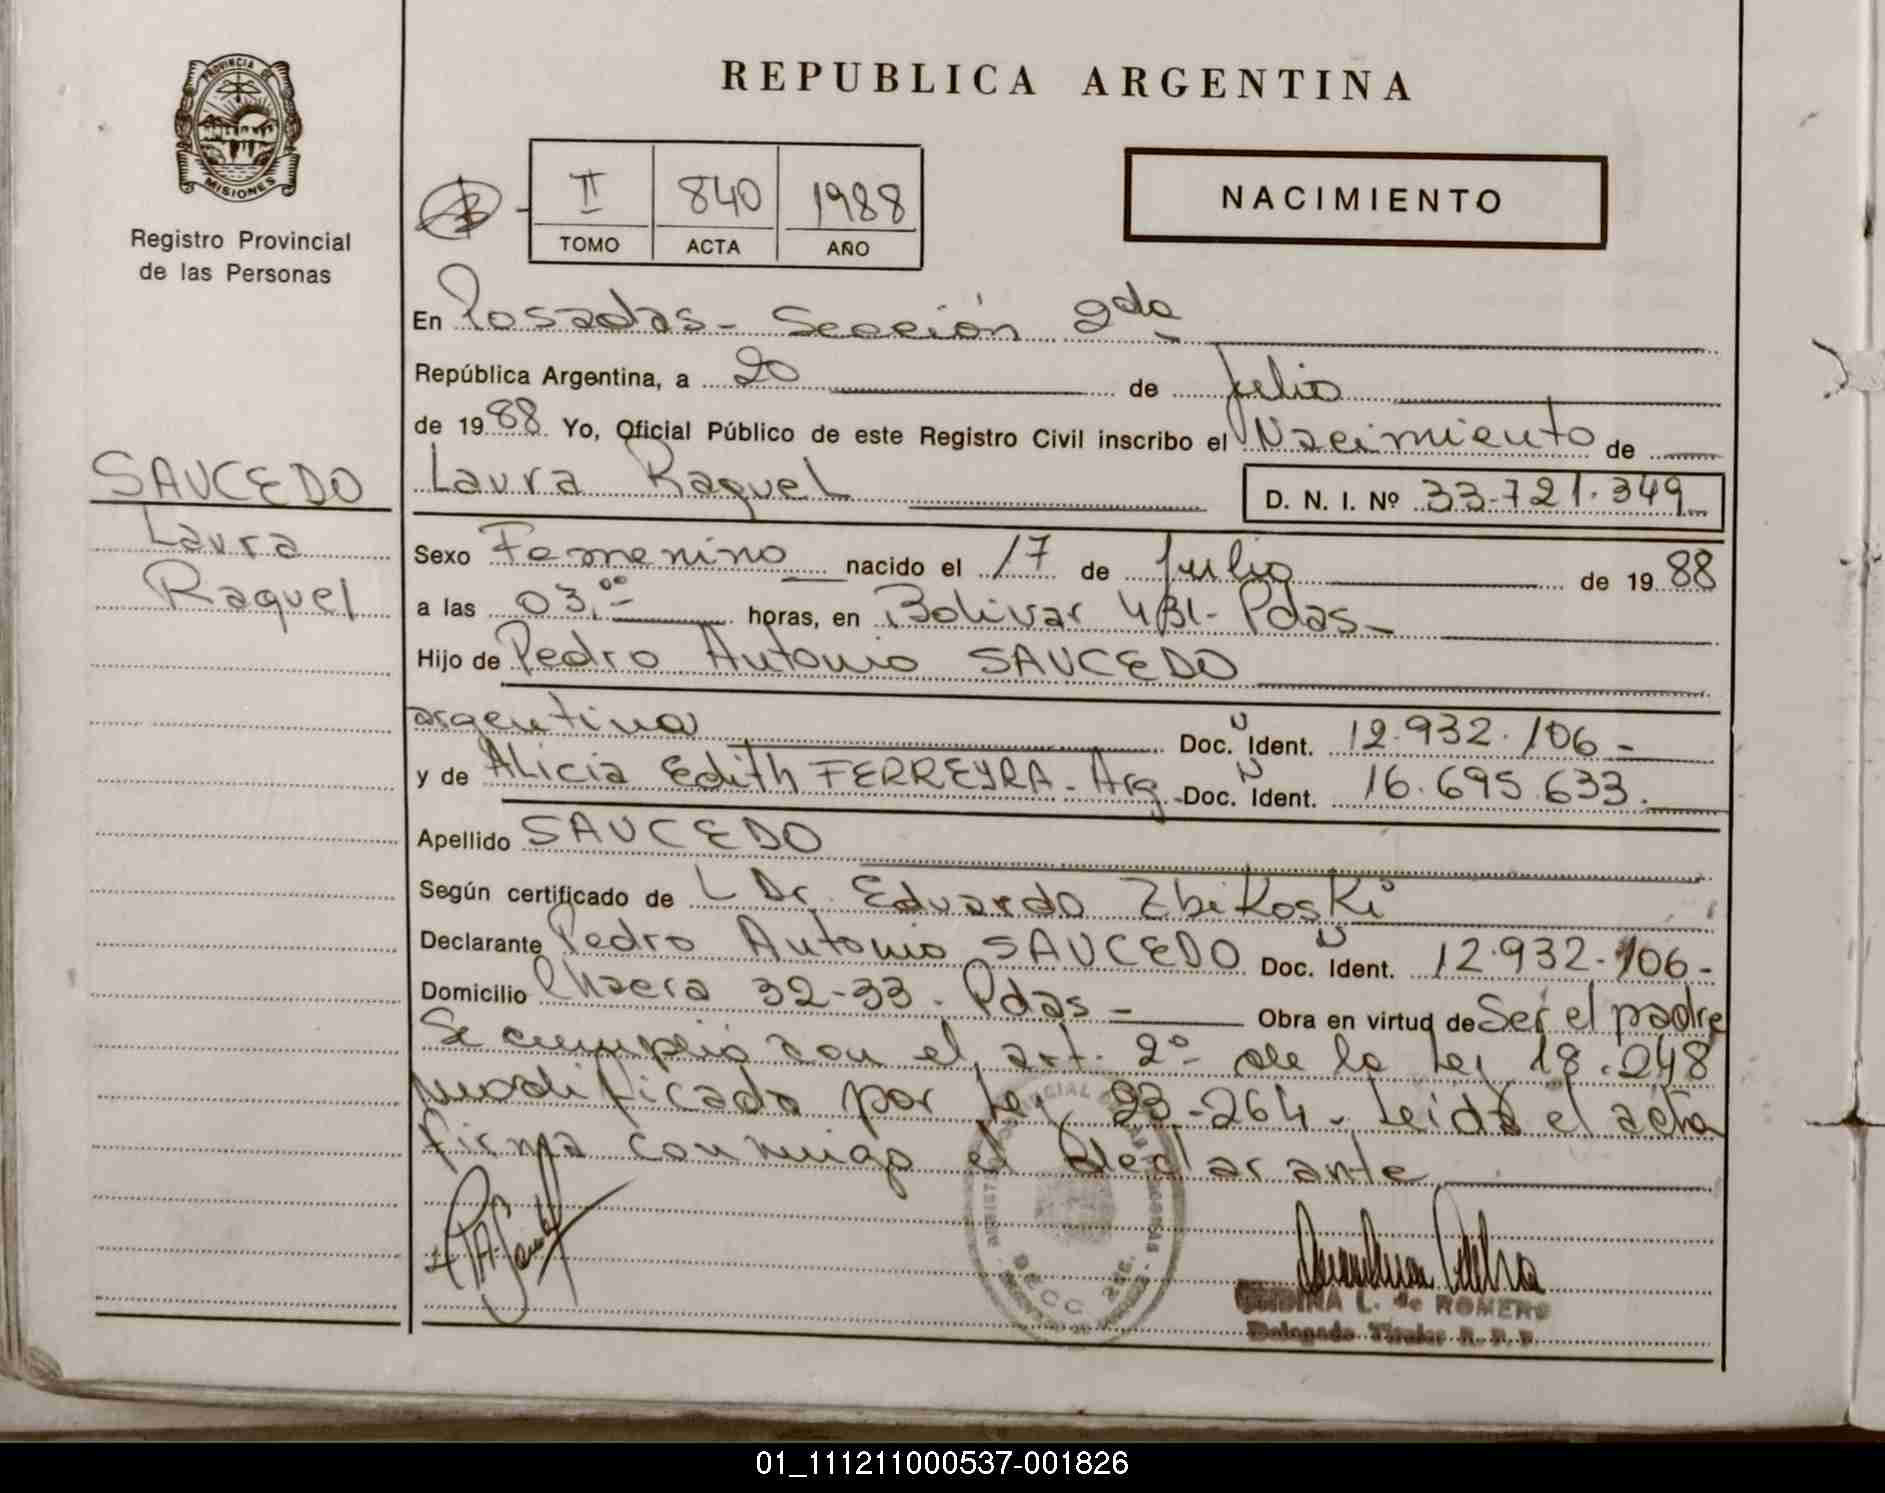 REPUBLICA ARGENTINA
PROVINCIA DE
MISIONES
Registro Provincial
de las Personas
II 840 1988
TOMO ACTA AÑO
NACIMIENTO
En Posadas - Sección 2da
República Argentina, a 20 de Julio
de 1988 Yo, Oficial Público de este Registro Civil inscribo el Nacimiento de
Laura Raquel D. N. I. Nº 33.721.349
SAUCEDO
Laura
Raquel
Sexo Femenino nacido el 17 de Julio de 1988
a las 03,00 horas, en Bolivar Pdas -
Hijo de Pedro Antonio SAUCEDO
argentina Doc. N Ident. 12.932.106 -
y de Alicia Edith FERREYRA - Arg. Doc. N Ident. 16.695.633.
Apellido SAUCEDO
Según certificado de L Dr. Eduardo ZbiKosKi
Declarante Pedro Antonio SAUCEDO Doc. N Ident. 12.932.106 -
Domicilio Chacra 32-33. Pdas - Obra en virtud de Ser el padre
Se cumplió con el art. 2º de la Ley 18.248
modificado por Ley 23.264 - Leida el acta
firma conmigo el declarante
SECC. 2DA.
L. de ROMERO
Delegado Titular R. P. P.
01_111211000537-001826